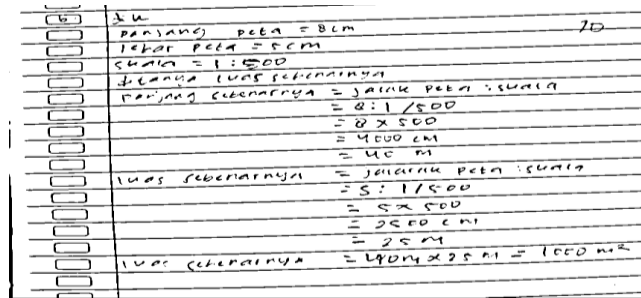 6 dik
panjang peta = 8 cm 20
lebar peta = 5 cm
skala = 1 : 500
ditanya luas sebenarnya
Panjang sebenarnya = jarak peta : skala
= 8 : 1 / 500
= 8 x 500
= 4000 cm
= 40 m
luas sebenarnya = jalarak peta : skala
= 5 : 1 / 500
= 5 x 500
= 2500 cm
= 25 m
luas sebenarnya = 40m x 25 m = 1000 m²